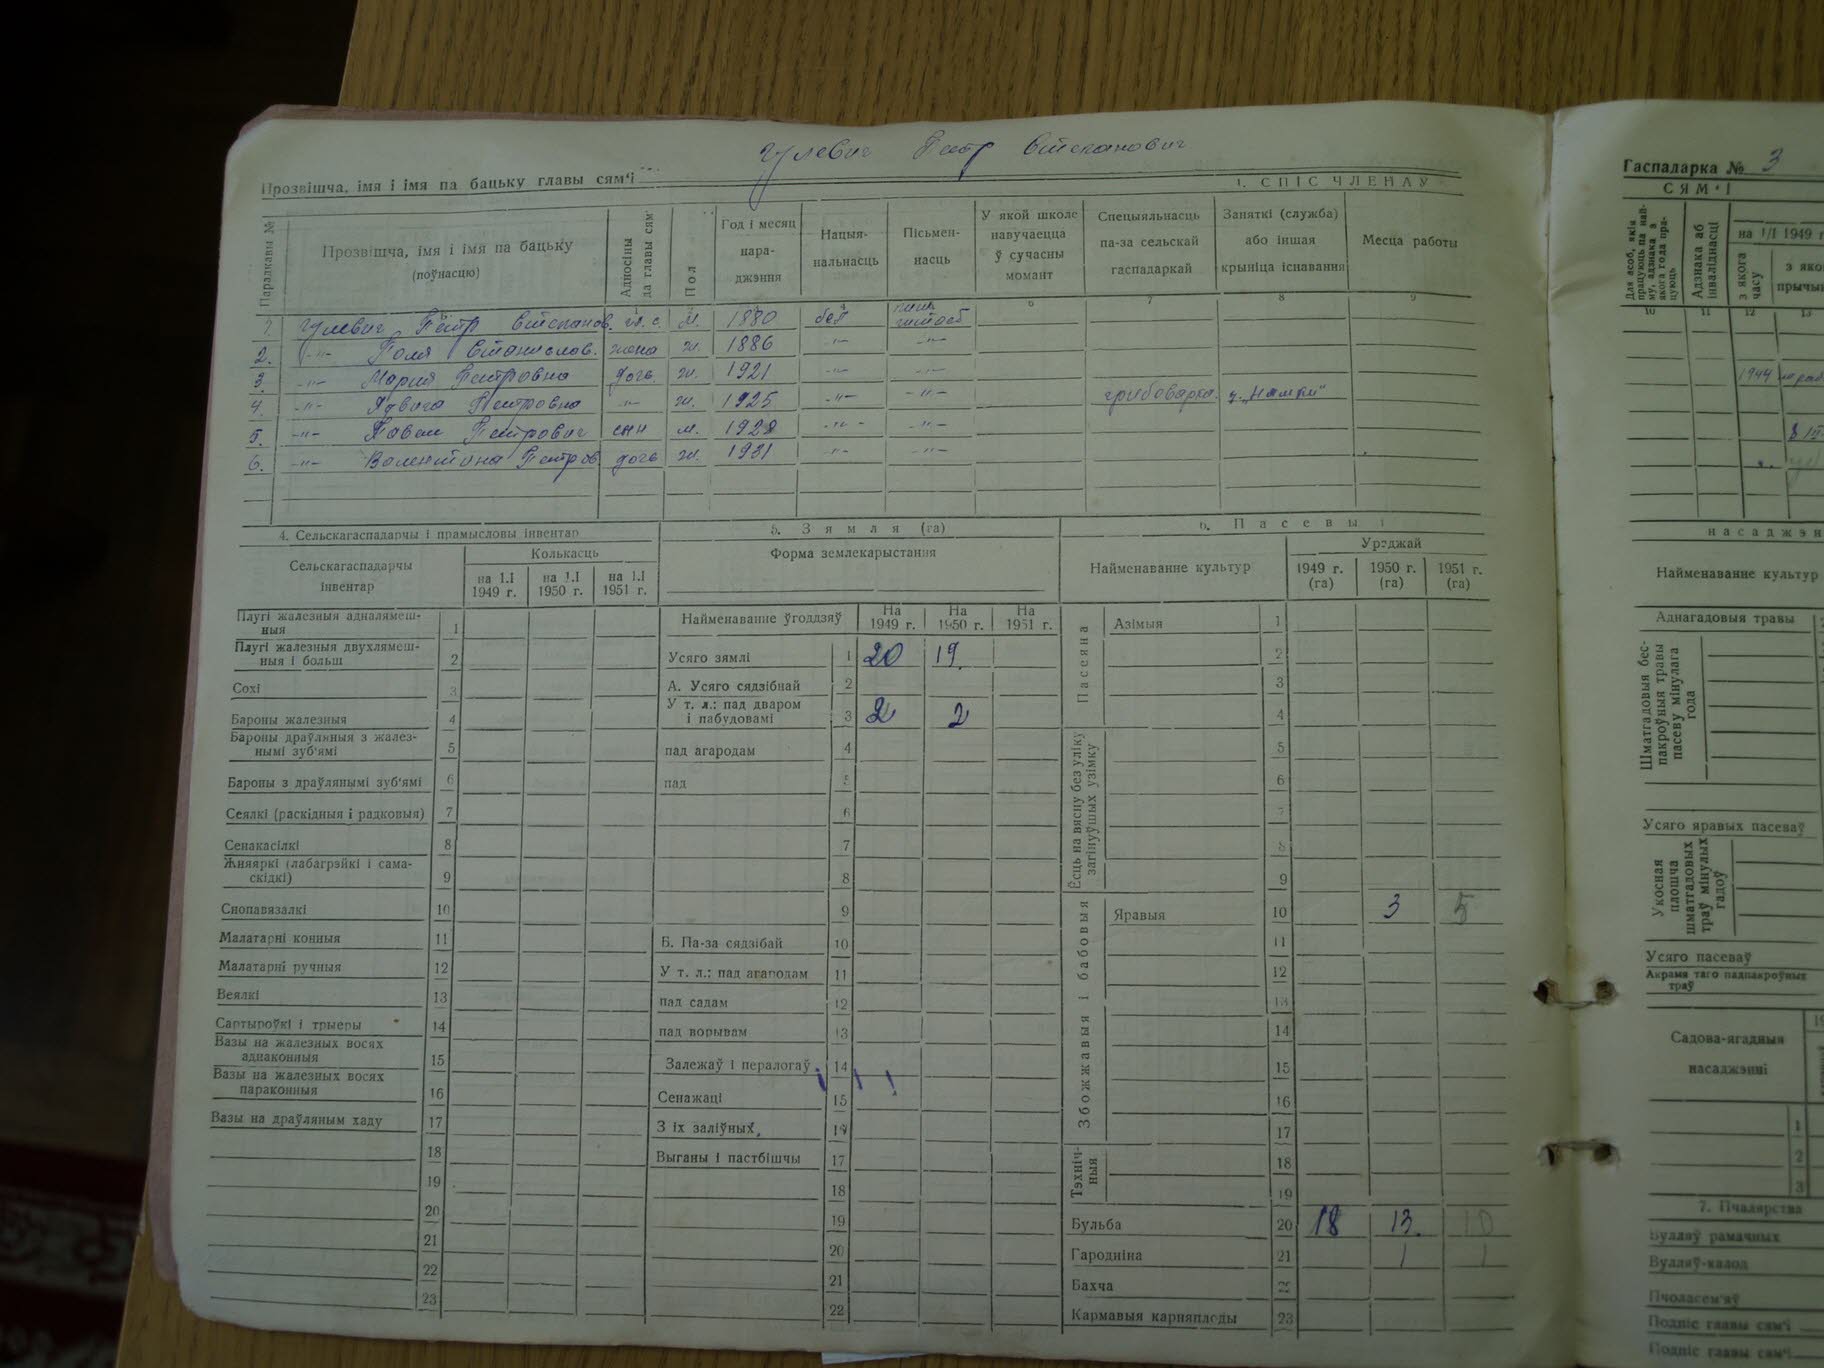 Гулевич Петр Стспанович
Прозвішча, імя і імя па бацьку главы сям'і
1. СПІС ЧЛЕНАЎ
Парадкавы №
Прозвішча, імя і імя па бацьку
(поўнасцю)
Адносіны да главы сям'
Пол
Год і месяц нара- джэння
Нацыя- нальнасць
Пісьмен- насць
У якой школе навучаецца ў сучасны момант
Спецыяльнасць па-за сельскай гаспадаркай
Заняткі (служба) або іншая крыніца існавання
Месца работы
4 6 7 8 9
1. Гулевич Петр Стспанов. гл. с. м. 1880 бел
2. -"- Поля Станислав. жена ж. 1886 -"- -"-
3. -"- Мария Петровна дочь ж. 1921 -"- -"-
4. -"- Ядвига Петровна -"- ж. 1925 -"- -"- грибоварка.
5. -"- Павел Петрович сын м. 1928 -"- -"-
6. -"- Валентина Петров дочь ж. 1931 -"- -"-
4. Сельскагаспадарчы і прамысловы інвентар
Сельскагаспадарчы інвентар
Колькасць
на 1.I 1949 г.
на 1.I 1950 г.
на 1.I 1951 г.
Плугі жалезныя адналямеш- ныя 1
Плугі жалезныя двухлямеш- ныя і больш 2
Сохі 3
Бароны жалезныя 4
Бароны драўляныя з жалез- нымі зуб'ямі 5
Бароны з драўлянымі зуб'ямі 6
Сеялкі (раскідныя і радковыя) 7
Сенакасілкі 8
Жняяркі (лабагрэйкі і сама- скідкі) 9
Снопавязалкі 10
Малатарні конныя 11
Малатарні ручныя 12
Веялкі 13
Сартыроўкі і трыеры 14
Вазы на жалезных восях аднаконныя 15
Вазы на жалезных восях параконныя 16
Вазы на драўляным хаду 17
18
19
20
21
22
23
5. Зямля (га)
Форма землекарыстання
Найменаванне ўгоддзяў
На 1949 г.
На 1950 г.
На 1951 г.
Усяго зямлі 1 20 19.
А. Усяго сядзібнай 2
У т. л.: пад дваром і пабудовамі 3 2 2
пад агародам 4
пад 5
6
7
8
9
Б. Па-за сядзібай 10
У т. л.: пад агародам 11
пад садам 12
пад ворывам 13
Залежаў і пералогаў 14
Сенажаці 15
З іх заліўных
Выганы і пастбішчы 17
18
19
20
21
22
6. Пасевы і
Найменаванне культур
Ураджай
1949 г. (га)
1950 г. (га)
1951 г. (га)
Пасеяна
Азімыя 1
2
3
4
Ёсць на вясну без уліку загінуўшых узімку
5
6
7
8
9
Збожжавыя і бабовыя
Яравыя 10 3 5
11
12
13
14
15
16
17
Тэхніч- ныя
18
19
Бульба 20 18 13. 10
Гародніна 21 1 1
Бахча 22
Кармавыя карняплоды 23
Гаспадарка № 3
СЯМ'І
Для асоб, якія працуюць па най- му, адзнака з якога года пра- цуюць
Адзнака аб інваліднасці
на 1/I 1949 г
з якога часу
з яко прычын
10 11 12 13
1944
насаджэн
Найменаванне культур
Аднагадовыя травы
Шматгадовыя бес- пакроўныя травы пасеву мінулага года
Усяго яравых пасеваў
Укосная плошча шматгадовых траў мінулых гадоў
Усяго пасеваў
Акрамя таго падпакроўных траў
Садова-ягадныя насаджэнні
1
2
3
7. Пчалярства
Вулляў рамачных
Вулляў-калод
Пчоласем'яў
Подпіс главы сям'і
Подпіс главы сям'і